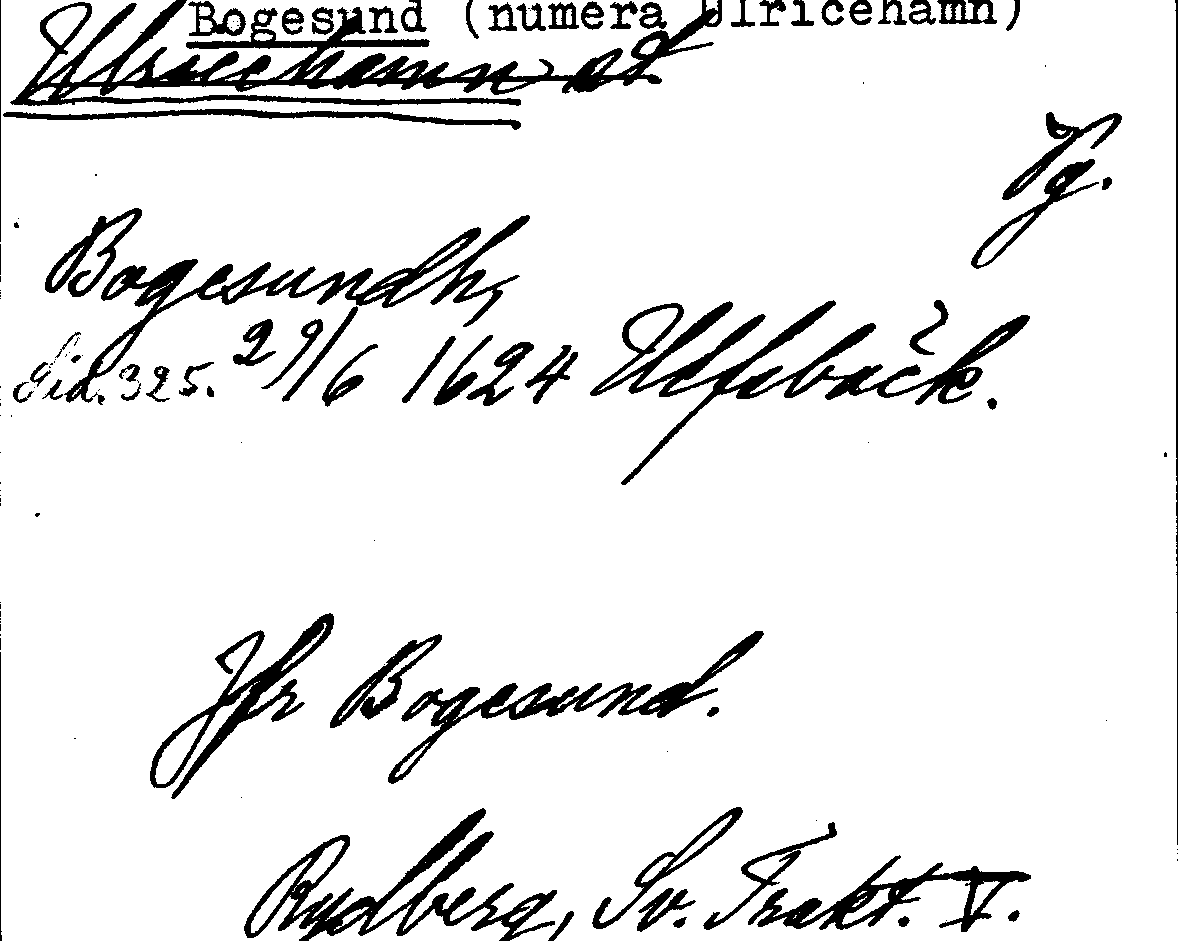 Bogesund (numera Ulricehamn)
Ulricehamn st
Vg.
Bogesundh,
Sid. 325. 29/6 1624 Ulfsbäck.
Jfr Bogesund.
Rydberg, Sv. Trakt. V.